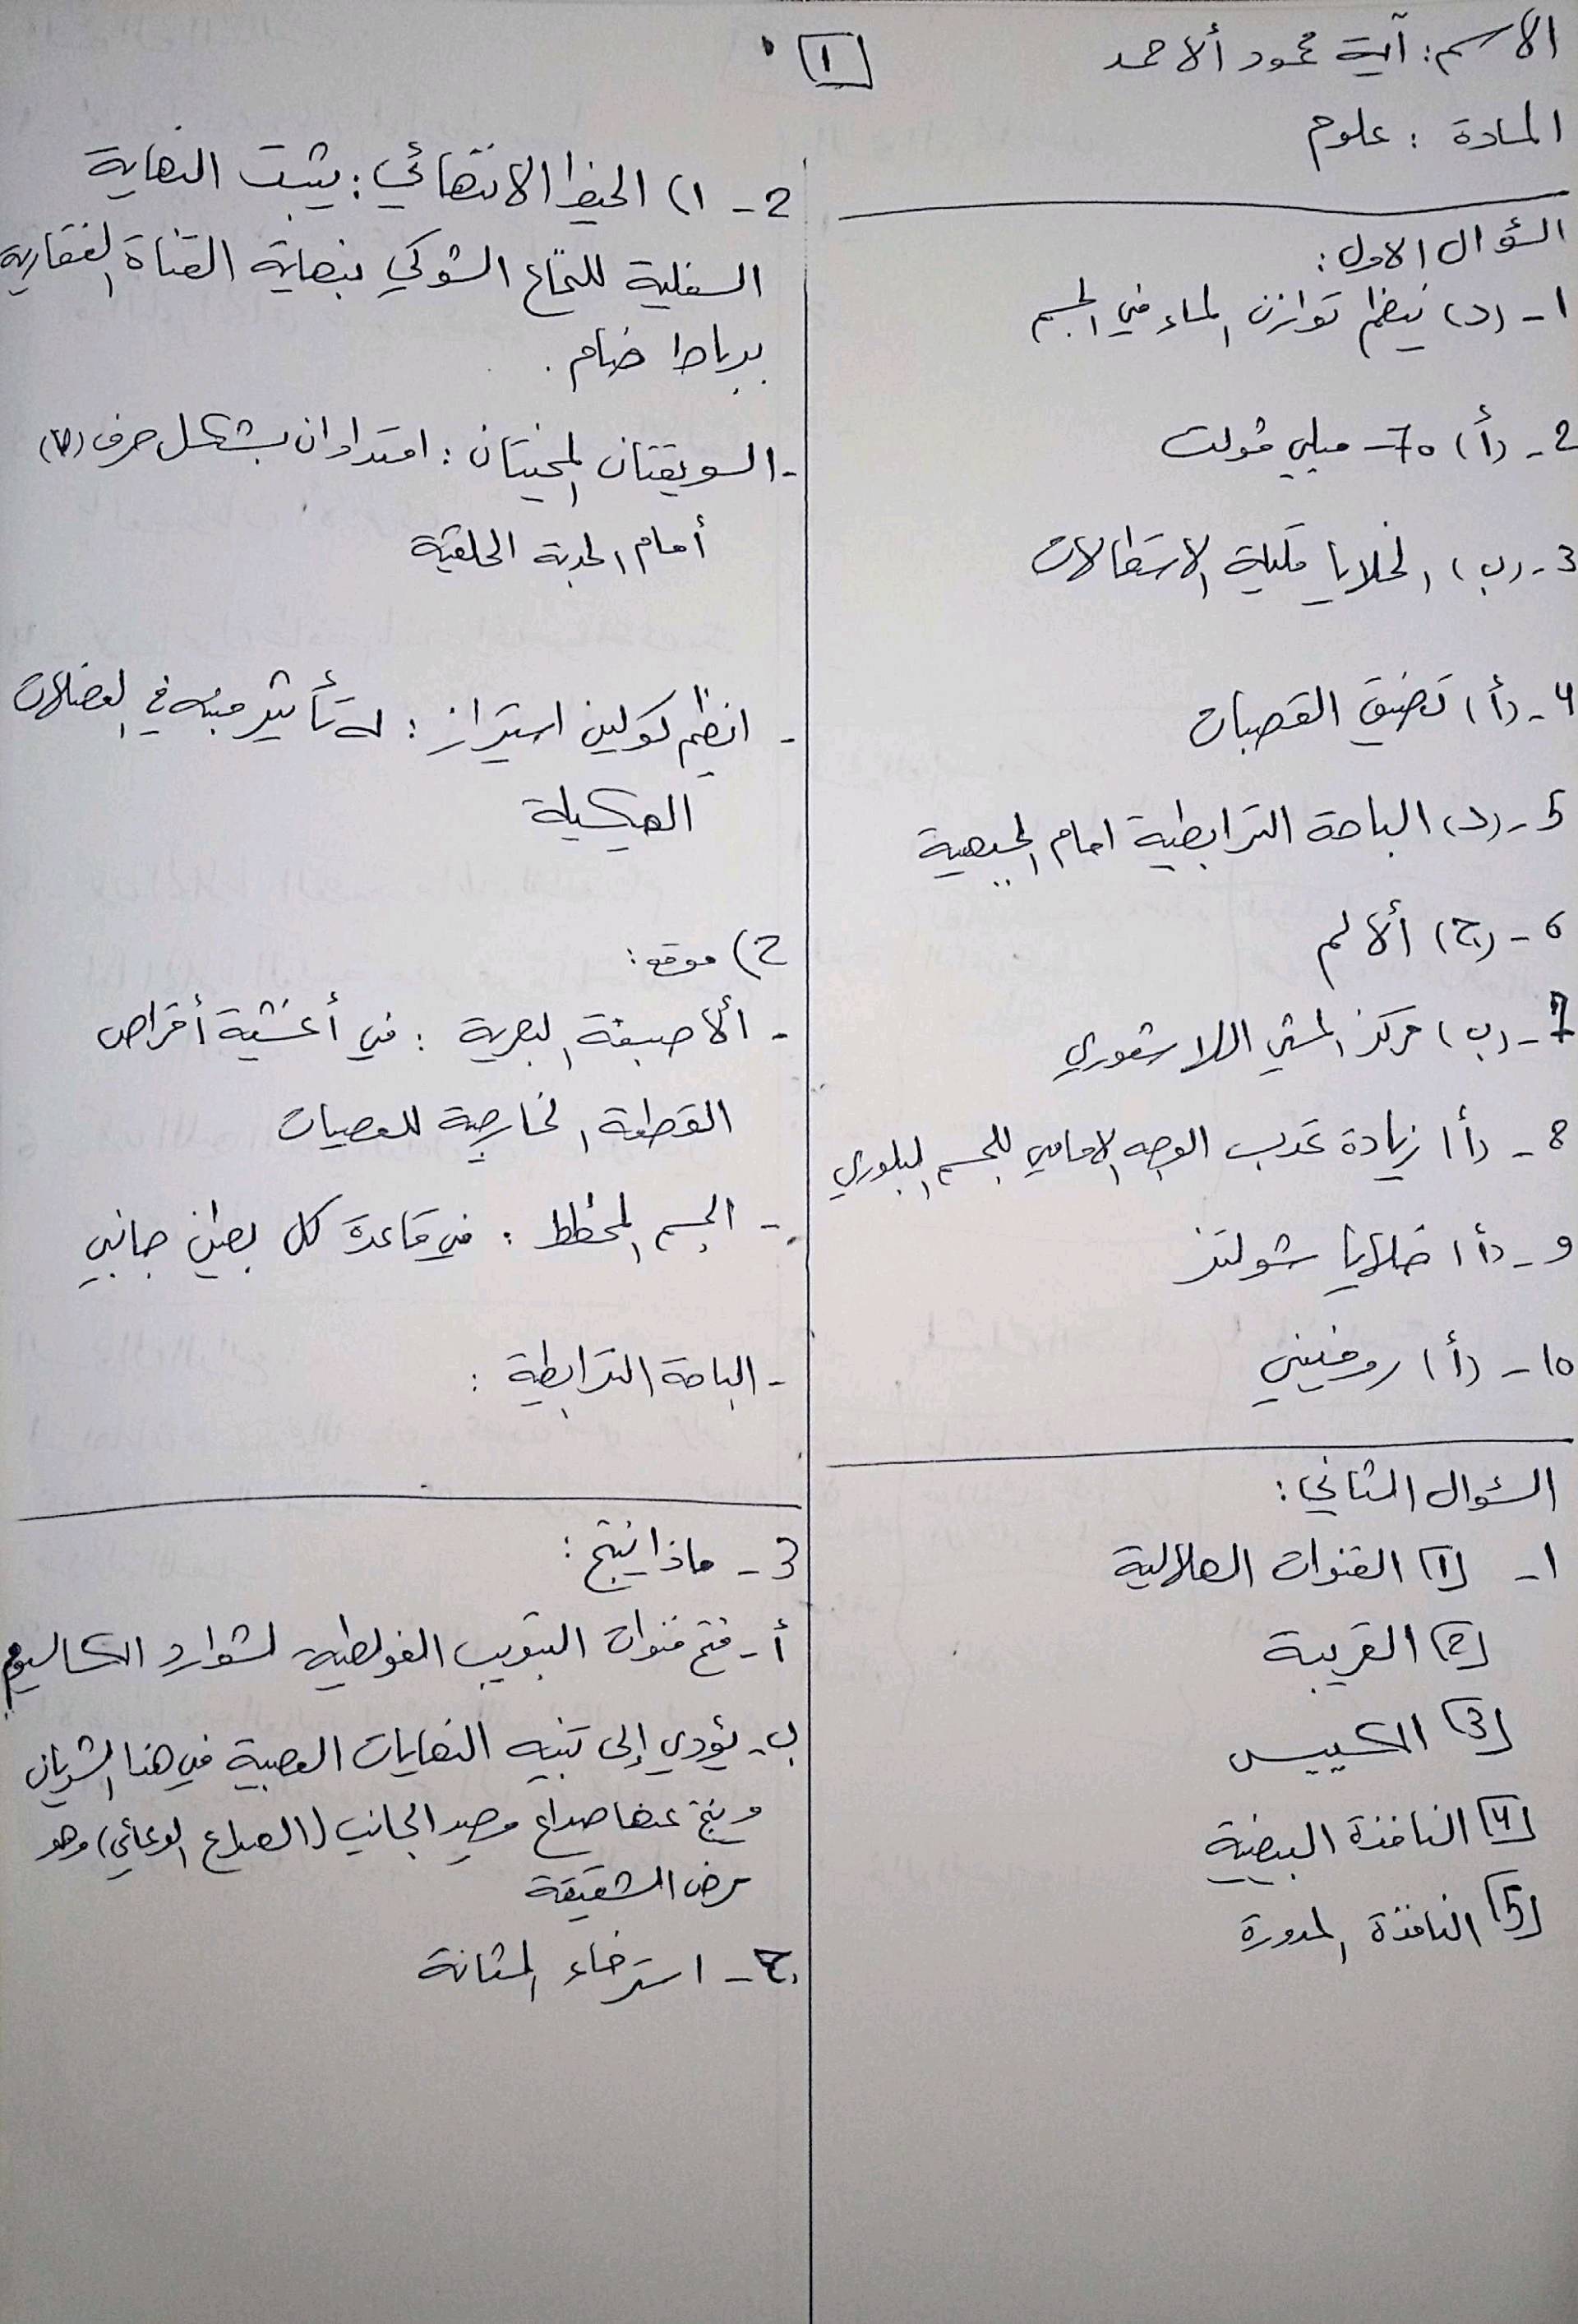 الاسم: آية محمود ألاحمد
المادة : علوم
[١]
السؤال الاول:
١- (د) ينظم توازن الماء في الجسم
2- (أ) 70- ميلي فولت
3- (ب) الخلايا قليلة الاستطالات
4- (أ) تضيق القصبات
5- (د) الباحة الترابطية امام الجبهية
6- (ج) ألالم
7- (ب) مركز المشي اللاشعوري
8- (أ) زيادة تحدب الوجه الامامي للجسم البلوري
9- (أ) خلايا شولتز
10- (أ) روفيني
السؤال الثاني:
١- (١) القنوات الهلالية
(2) القريبة
(3) الكييس
(4) النافذة البيضية
(5) النافذة المدورة
2- ١) الخيط الانتهائي: يثبت النهاية
السفلية للنخاع الشوكي بنهاية القناة الفقارية
برباط ضام.
- السويقتان المخيتان: امتدادان بشكل حرف (V)
أمام الحدبة الحلقية
- انظيم كولين استيراز: له تأثير منبه في العضلات
الهيكيلة
2) موقع:
- ألاصبغة البصرية: في أغشية أقراص
القطعة الخارجية للعصيات
- الجسم المخطط: في قاعدة كل بطين جانبي
- الباحة الترابطية:
3- ماذا ينتج:
أ- فتح قنوات التبويب الفولطية لشوارد الكالسيوم
ب- يؤدي إلى تنبيه النهايات العصبية في هذا الشريان
وينتج عنها صداع وحيد الجانب (الصداع الوعائي) وهو
مرض الشقيقة
ج- استرخاء المثانة